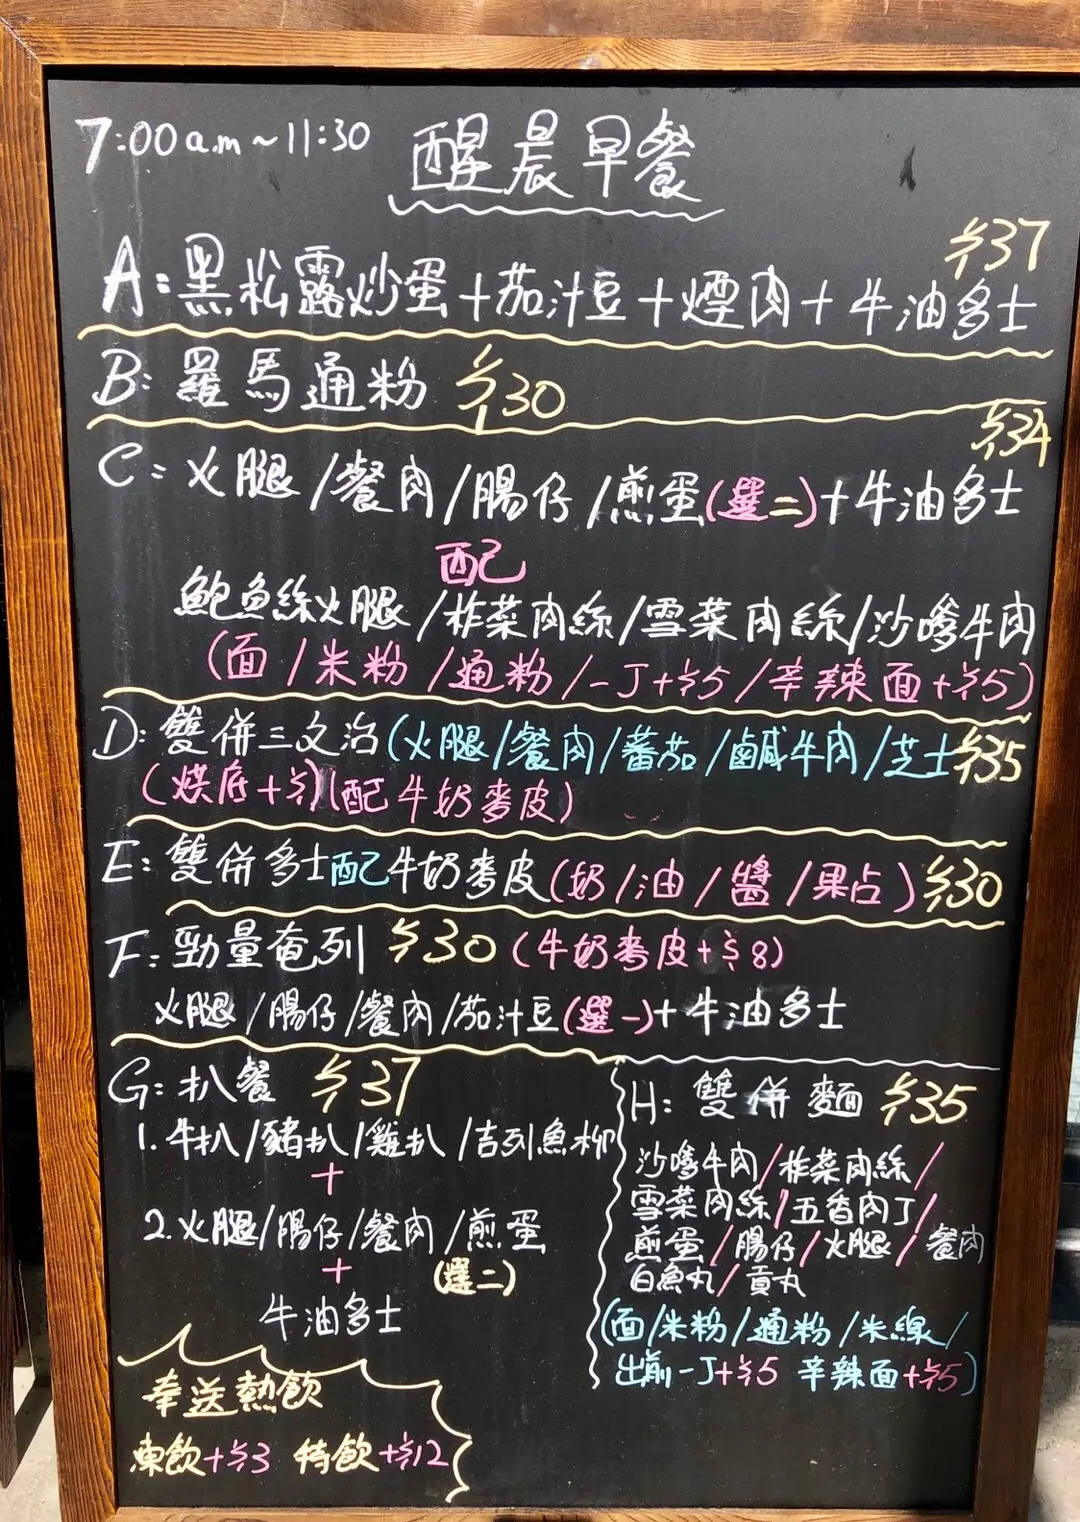 7:00 a.m ~ 11:30 醒晨早餐
$37
A: 黑松露炒蛋 + 茄汁豆 + 煙肉 + 牛油多士
B: 羅馬通粉 $30
$34
C: 火腿/餐肉/腸仔/煎蛋(選二)+牛油多士
配
鮑魚絲火腿/榨菜肉絲/雪菜肉絲/沙嗲牛肉
(面/米粉/通粉/一丁+$5/辛辣面+$5)
D: 雙併三文治(火腿/餐肉/蕃茄/鹹牛肉/芝士 $35
(烘底+$1)(配牛奶麥皮)
E: 雙併多士配牛奶麥皮(奶/油/醬/果占) $30
F: 勁量奄列 $30 (牛奶麥皮+$8)
火腿/腸仔/餐肉/茄汁豆(選一)+牛油多士
G: 扒餐 $37
1. 牛扒/豬扒/雞扒/吉列魚柳
+
2. 火腿/腸仔/餐肉/煎蛋
+ (選二)
牛油多士
H: 雙併麵 $35
沙嗲牛肉/榨菜肉絲/
雪菜肉絲/五香肉丁/
煎蛋/腸仔/火腿/餐肉
白魚丸/貢丸
(面/米粉/通粉/米線/
出前一丁+$5 辛辣面+$5)
奉送熱飲
凍飲+$3 特飲+$12